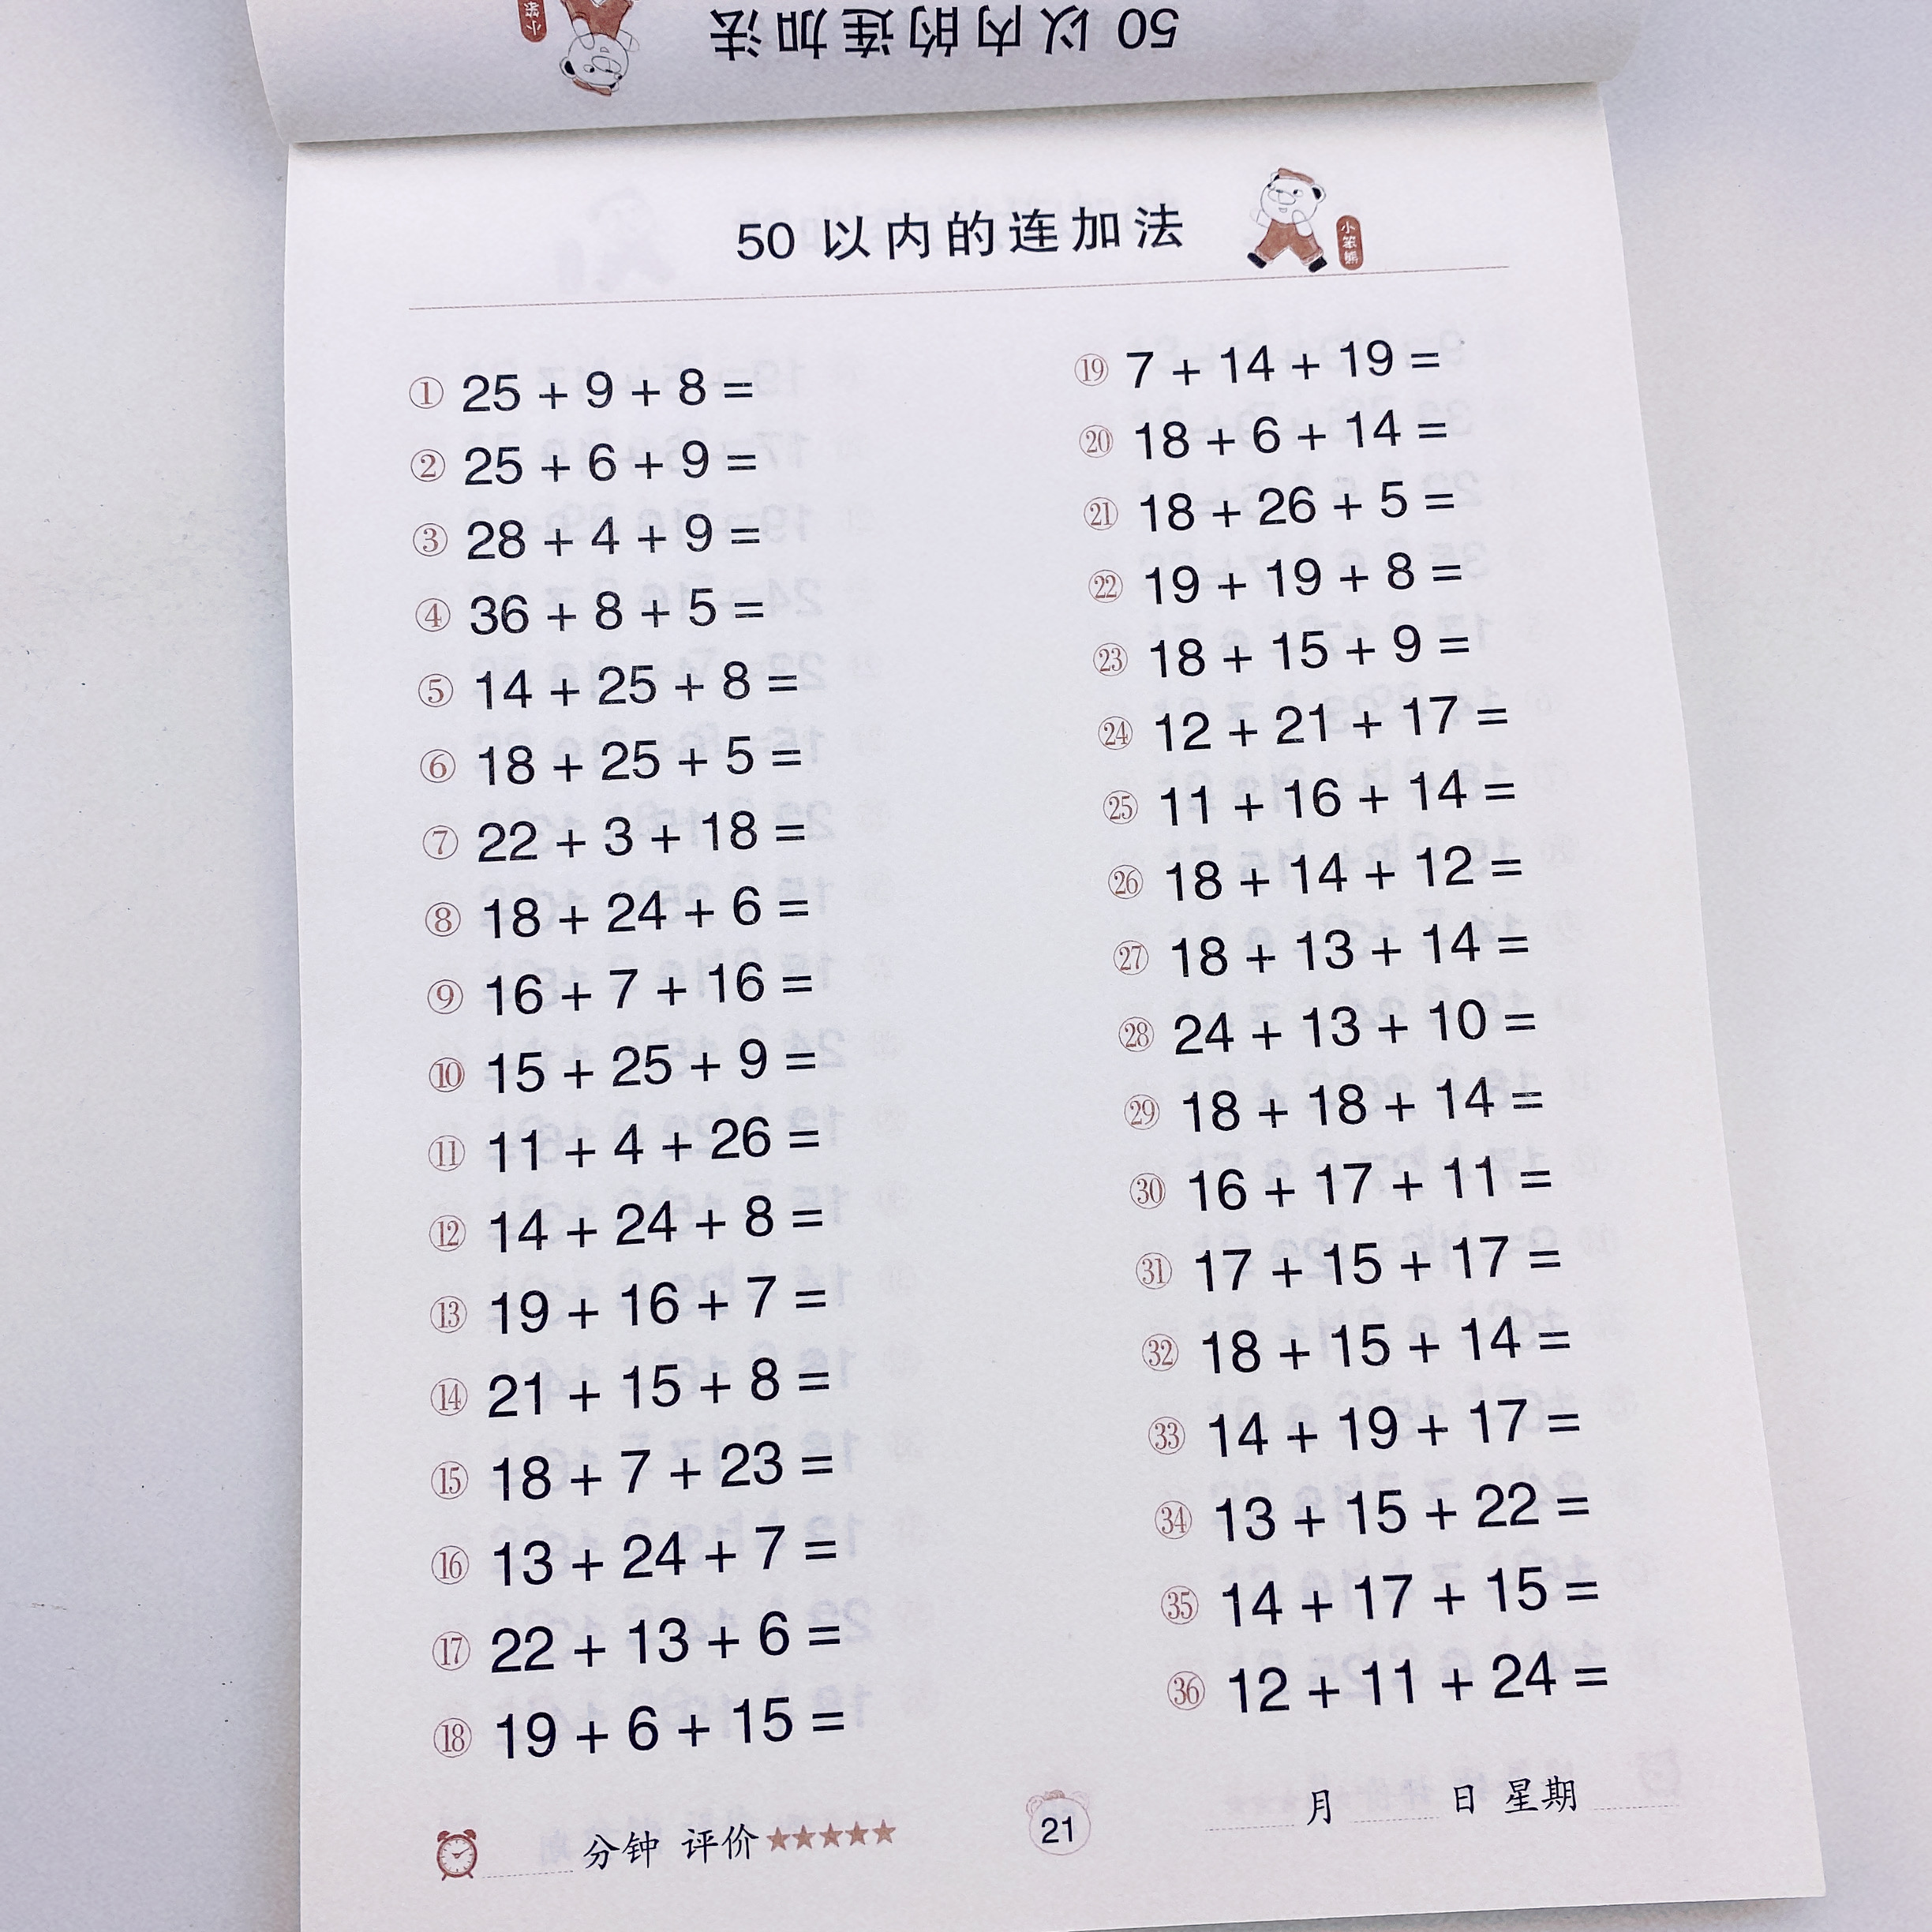 50 以内的连加法
50 以内的连加法
小笨熊
① 25 + 9 + 8 =
② 25 + 6 + 9 =
③ 28 + 4 + 9 =
④ 36 + 8 + 5 =
⑤ 14 + 25 + 8 =
⑥ 18 + 25 + 5 =
⑦ 22 + 3 + 18 =
⑧ 18 + 24 + 6 =
⑨ 16 + 7 + 16 =
⑩ 15 + 25 + 9 =
⑪ 11 + 4 + 26 =
⑫ 14 + 24 + 8 =
⑬ 19 + 16 + 7 =
⑭ 21 + 15 + 8 =
⑮ 18 + 7 + 23 =
⑯ 13 + 24 + 7 =
⑰ 22 + 13 + 6 =
⑱ 19 + 6 + 15 =
⑲ 7 + 14 + 19 =
⑳ 18 + 6 + 14 =
㉑ 18 + 26 + 5 =
㉒ 19 + 19 + 8 =
㉓ 18 + 15 + 9 =
㉔ 12 + 21 + 17 =
㉕ 11 + 16 + 14 =
㉖ 18 + 14 + 12 =
㉗ 18 + 13 + 14 =
㉘ 24 + 13 + 10 =
㉙ 18 + 18 + 14 =
㉚ 16 + 17 + 11 =
㉛ 17 + 15 + 17 =
㉜ 18 + 15 + 14 =
㉝ 14 + 19 + 17 =
㉞ 13 + 15 + 22 =
㉟ 14 + 17 + 15 =
㊱ 12 + 11 + 24 =
分钟 评价★★★★★
21
月 日 星期